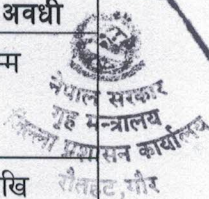 अवधी
म
नेपाल सरकार
गृह मन्त्रालय
जिल्ला प्रशासन कार्यालय
खि
रौतहट,गौर